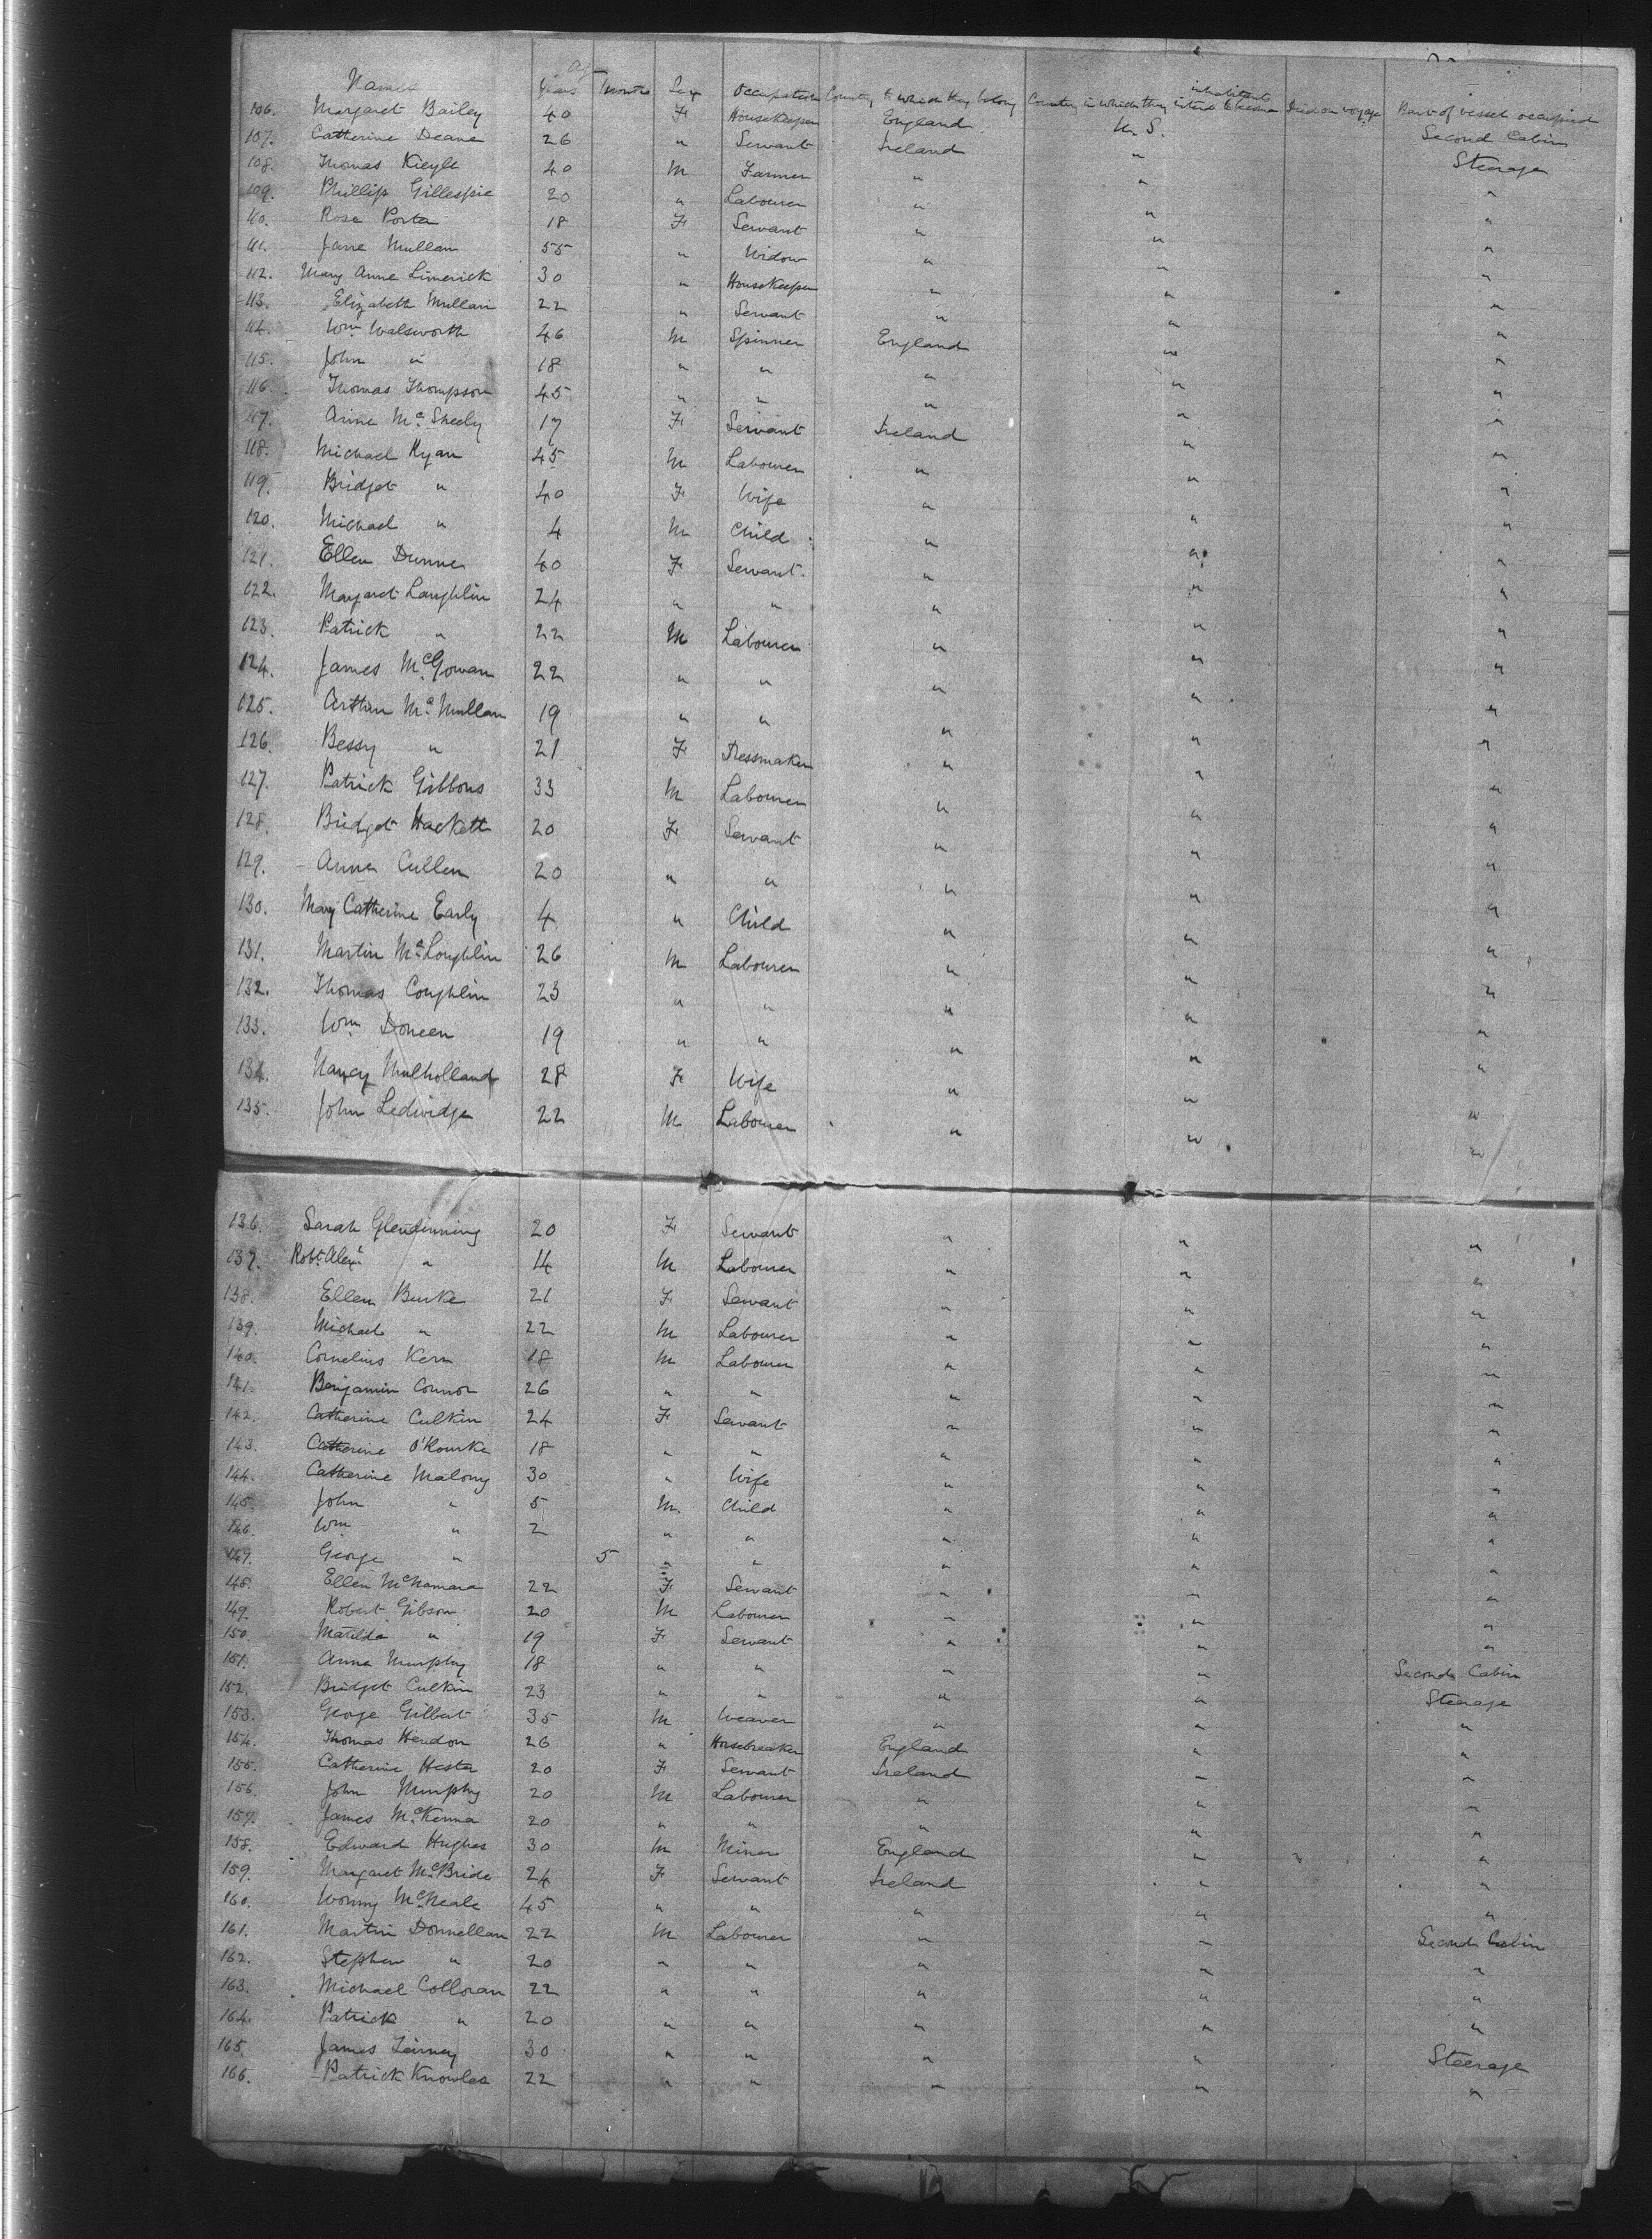 Names Age Years Months Sex Occupation Country to which they belong Country in which they intend to become inhabitants Died on voyage Part of vessel occupied
106. Margaret Bailey 40 F Housekeeper England U.S. Second Cabin
107. Catherine Deane 26 " Servant Ireland " Steerage
108. Thomas 40 M Farmer " " "
109. Phillip Gillespie 20 " Labourer " " "
110. Rose Porter 18 F Servant " " "
111. Jane Mullan 55 " Widow " " "
112. Mary Anne Limerick 30 " Housekeeper " " "
113. Elizabeth Mullan 22 " Servant " " "
114. Wm Walsworth 46 M Spinner England " "
115. John " 18 " " " " "
116. Thomas Thompson 45 " " " " "
117. Anne Mc Sheely 17 F Servant Ireland " "
118. Michael Ryan 45 M Labourer " " "
119. Bridget " 40 F Wife " " "
120. Michael " 4 M Child " " "
121. Ellen Dunne 40 F Servant " " "
122. Margaret Laughlin 24 " " " " "
123. Patrick " 22 M Labourer " " "
124. James McGowan 22 " " " " "
125. Arthur Mc Mullan 19 " " " " "
126. Bessy " 21 F Dressmaker " " "
127. Patrick Gibbons 33 M Labourer " " "
128. Bridget Hackett 20 F Servant " " "
129. Anne Cullen 20 " " " " "
130. Mary Catherine Early 4 " Child " " "
131. Martin McLoughlin 26 M Labourer " " "
132. Thomas Coughlin 23 " " " " "
133. Wm Doneen 19 " " " " "
134. Nancy Mulholland 28 F Wife " " "
135. John Ledwidge 22 M Labourer " " "
136. Sarah Glendinning 20 F Servant " " "
137. Robt Alexr " 14 M Labourer " " "
138. Ellen Burke 21 F Servant " " "
139. Michael " 22 M Labourer " " "
140. Cornelius Kern 18 M Labourer " " "
141. Benjamin Connor 26 " " " " "
142. Catherine Culkin 24 F Servant " " "
143. Catherine O'Rourke 18 " " " " "
144. Catherine Malony 30 " Wife " " "
145. John " 5 M. Child " " "
146. Wm " 2 " " " " "
147. George " 5 " " " " "
148. Ellen McNamara 22 F Servant " " "
149. Robert Gibson 20 M Labourer " " "
150. Matilda " 19 F Servant " " "
151. Anna Murphy 18 " " " " Second Cabin
152. Bridget Culkin 23 " " " " Steerage
153. George Gilbert 35 M Weaver " " "
154. Thomas Hendon 26 " Horsebreaker England " "
155. Catherine Hester 20 F Servant Ireland " "
156. John Murphy 20 M Labourer " " "
157. James McKenna 20 " " " " "
158. Edward Hughes 30 M Miner England " "
159. Margaret McBride 24 F Servant Ireland " "
160. McNeale 45 " " " " "
161. Martin Donnellan 22 M Labourer " " Second Cabin
162. Stephen " 20 " " " " "
163. Michael Colloran 22 " " " " "
164. Patrick " 20 " " " " "
165. James 30 " " " " Steerage
166. Patrick Knowles 22 " " " " "